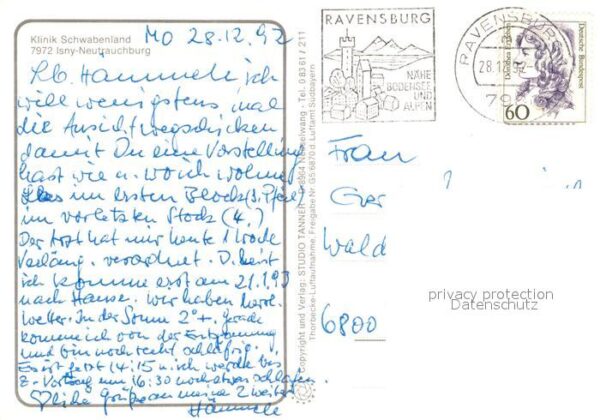 Klinik Schwabenland
7972 Isny-Neutrauchburg
Mo 28.12.92
Lb. Hämmele, ich
will wenigstens mal
die Ansicht wegschicken
damit Du eine Vorstellung
hast wie u. wo ich wohne
im ersten Block (s. Pfeil)
im vorletzten Stock (4.)
Der Arzt hat mir heute 1 Woche
Verläng. verordnet. D. heist
ich komme erst am 21.1.93
nach Hause. Wir haben herrl.
Wetter. In der Sonne 2°+. Gerade
komme ich von der Entspannung
und bin noch recht schläfrig.
Es ist jetzt 14:15 u. ich werde bis
z. Vortrag um 16:30 noch etwas schlafen.
♡liche Grüße an meine 2 weiter
Hämmele
Copyright und Verlag: STUDIO TANNER · Nesselwang · Tel. 08361 / 211
Thorbecke-Luftaufnahme, Freigabe Nr. G5/6870 d. Luftamt Südbayern
RAVENSBURG
NÄHE
BODENSEE
UND
ALPEN
RAVENSBURG
28.12.92
Deutsche Bundespost
60
Frau
Ger
Wald
6800
privacy protection
Datenschutz